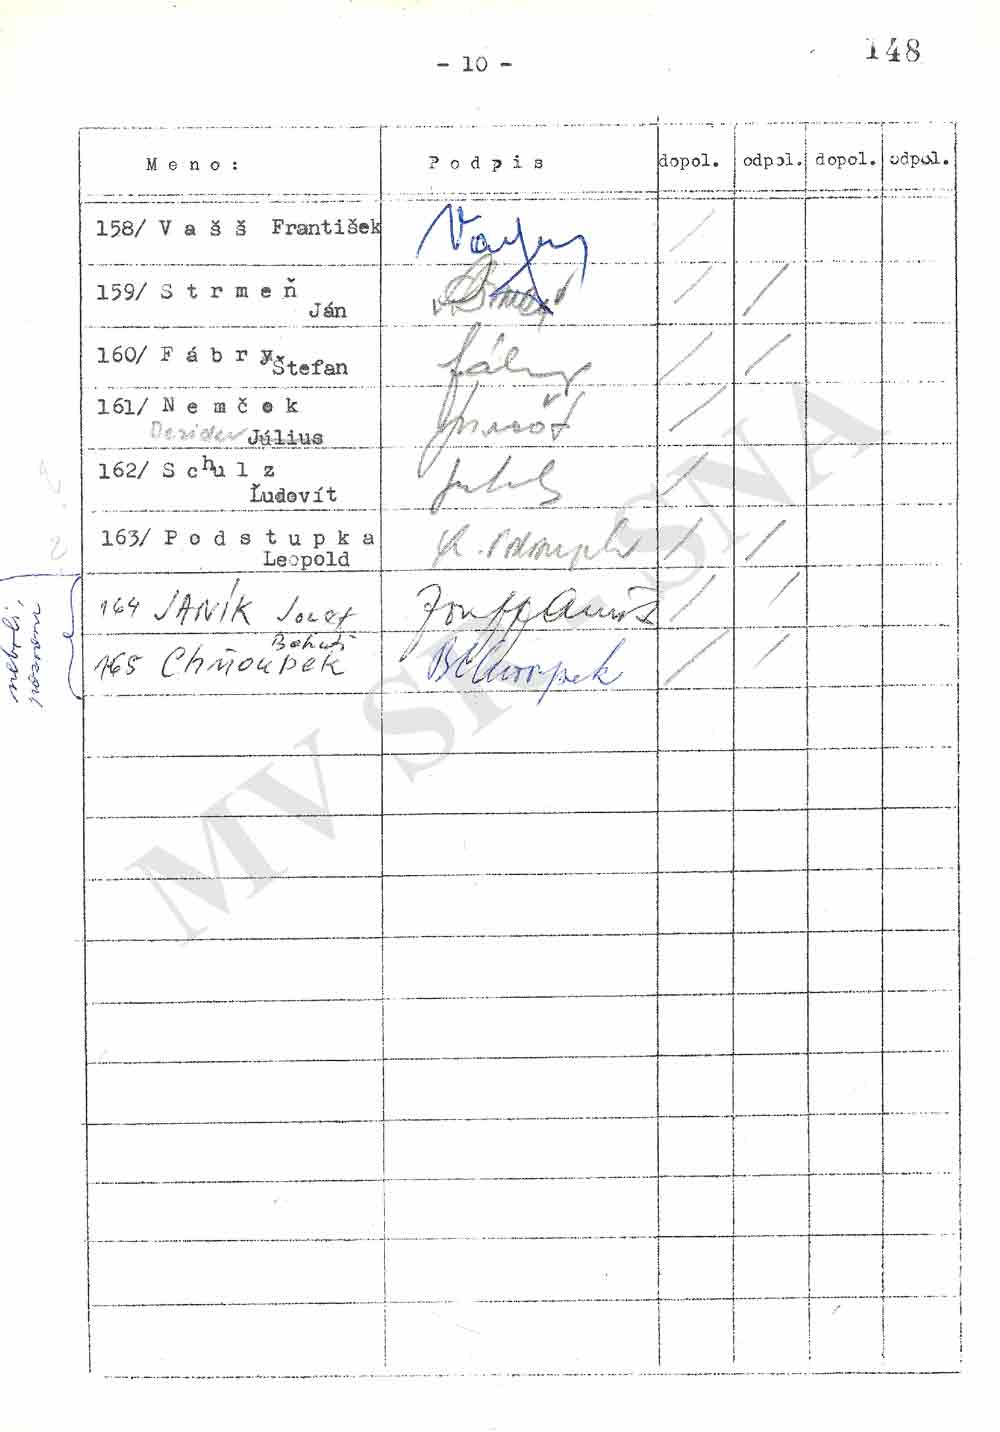 148
- 10 -
Meno: Podpis dopol. odpol. dopol. odpol.
158/ Vašš František
159/ Strmeň
Ján
160/ Fábry
Štefan
161/ Nemček
Dezider Július
162/ Schulz
Ľudovít
163/ Podstupka
Leopold
164 JANÍK Jozef
Bohuš
165 Chňoupek BChnoupek
MV SR - SNA